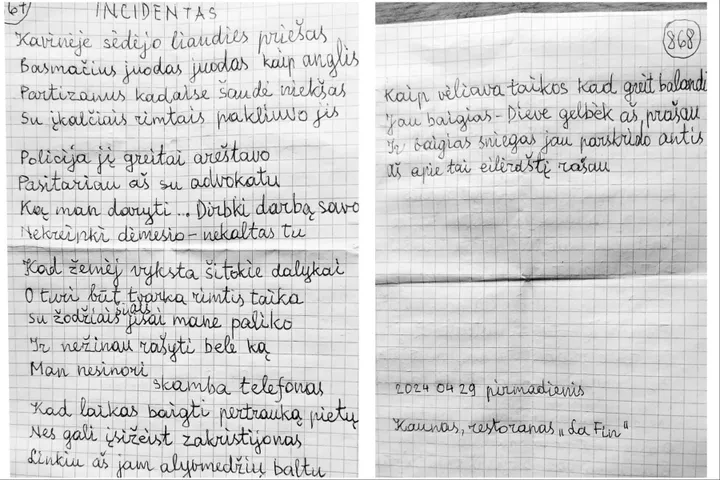 67
INCIDENTAS
Kavinėje sėdėjo liaudies priešas
Basmačius juodas juodas kaip anglis
Partizanus kadaise šaudė niekšas
Su įkalčiais rimtais pakliuvo jis
Policija jį greitai areštavo
Pasitariau aš su advokatu
Ką man daryti... Dirbki darbą savo
Nekreipki dėmesio - nekaltas tu
Kad žemėj vyksta šitokie dalykai
O turi būt tvarka rimtis taika
Su žodžiais jisai mane paliko
Ir nežinau rašyti belė ką
Man nesinori
skamba telefonas
Kad laikas baigti pertrauką pietų
Nes gali įsižeist zakristijonas
Linkiu aš jam alyvmedžių baltų
868
Kaip vėliava taikos kad greit balandi
Jau baigias - Dieve gelbėk aš prašau
Ir baigias sniegas jau parskrido antis
Aš apie tai eilėraštį rašau
2024 04 29 pirmadienis
Kaunas, restoranas „La Fin"